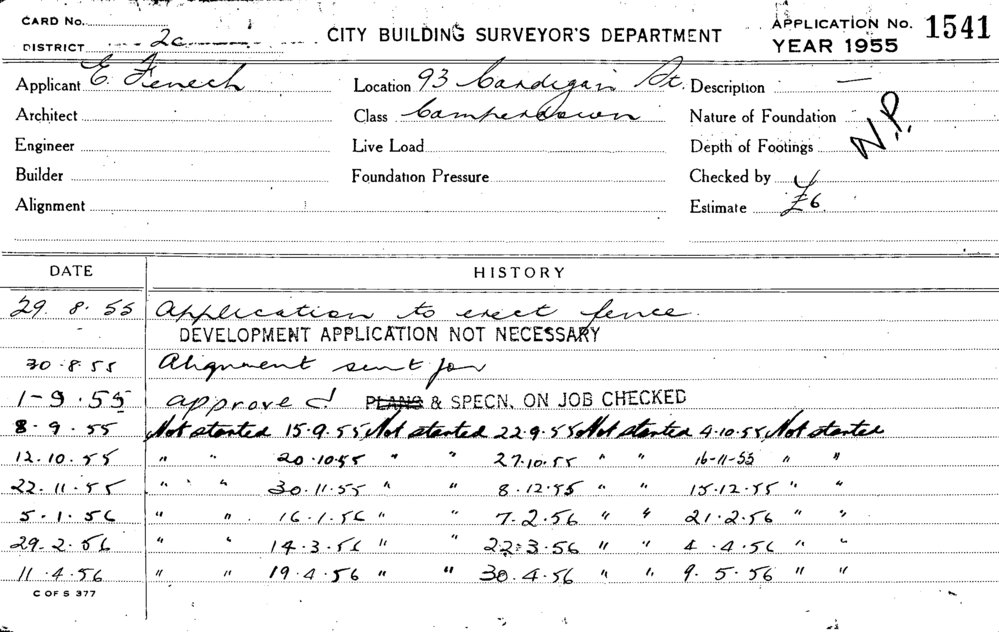 CARD No. CITY BUILDING SURVEYOR'S DEPARTMENT APPLICATION No. 1541
DISTRICT 2c YEAR 1955
Applicant E. Fenech Location 93 Cardigan St. Description —
Architect Class Camperdown Nature of Foundation N.P.
Engineer Live Load Depth of Footings
Builder Foundation Pressure Checked by
Alignment Estimate £6
DATE HISTORY
29. 8. 55 Application to erect fence.
DEVELOPMENT APPLICATION NOT NECESSARY
30.8.55 Alignment sent for
1-9.55 approved PLANS & SPECN. ON JOB CHECKED
8.9.55 Not started 15.9.55 Not started 22.9.55 Not started 4.10.55 Not started
12.10.55 " " 20.10.55 " " 27.10.55 " " 16-11-55 " "
22.11.55 " " 30.11.55 " " 8.12.55 " " 15.12.55 " "
5.1.56 " " 16.1.56 " " 7.2.56 " " 21.2.56 " "
29.2.56 " " 14.3.56 " " 22.3.56 " " 4.4.56 " "
11.4.56 " " 19.4.56 " " 30.4.56 " " 9.5.56 " "
C OF S 377